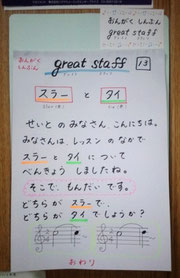 おんがく
しんぶん
great staff
13
スラー と タイ
せいとの みなさん、こんにちは。
みなさんは、レッスンの なかで
スラー と タイ について
べんきょう しましたね。
そこで、もんだい です。
どちらが スラー で、
どちらが タイ でしょうか？
おわり
おんがく しんぶん
great staff